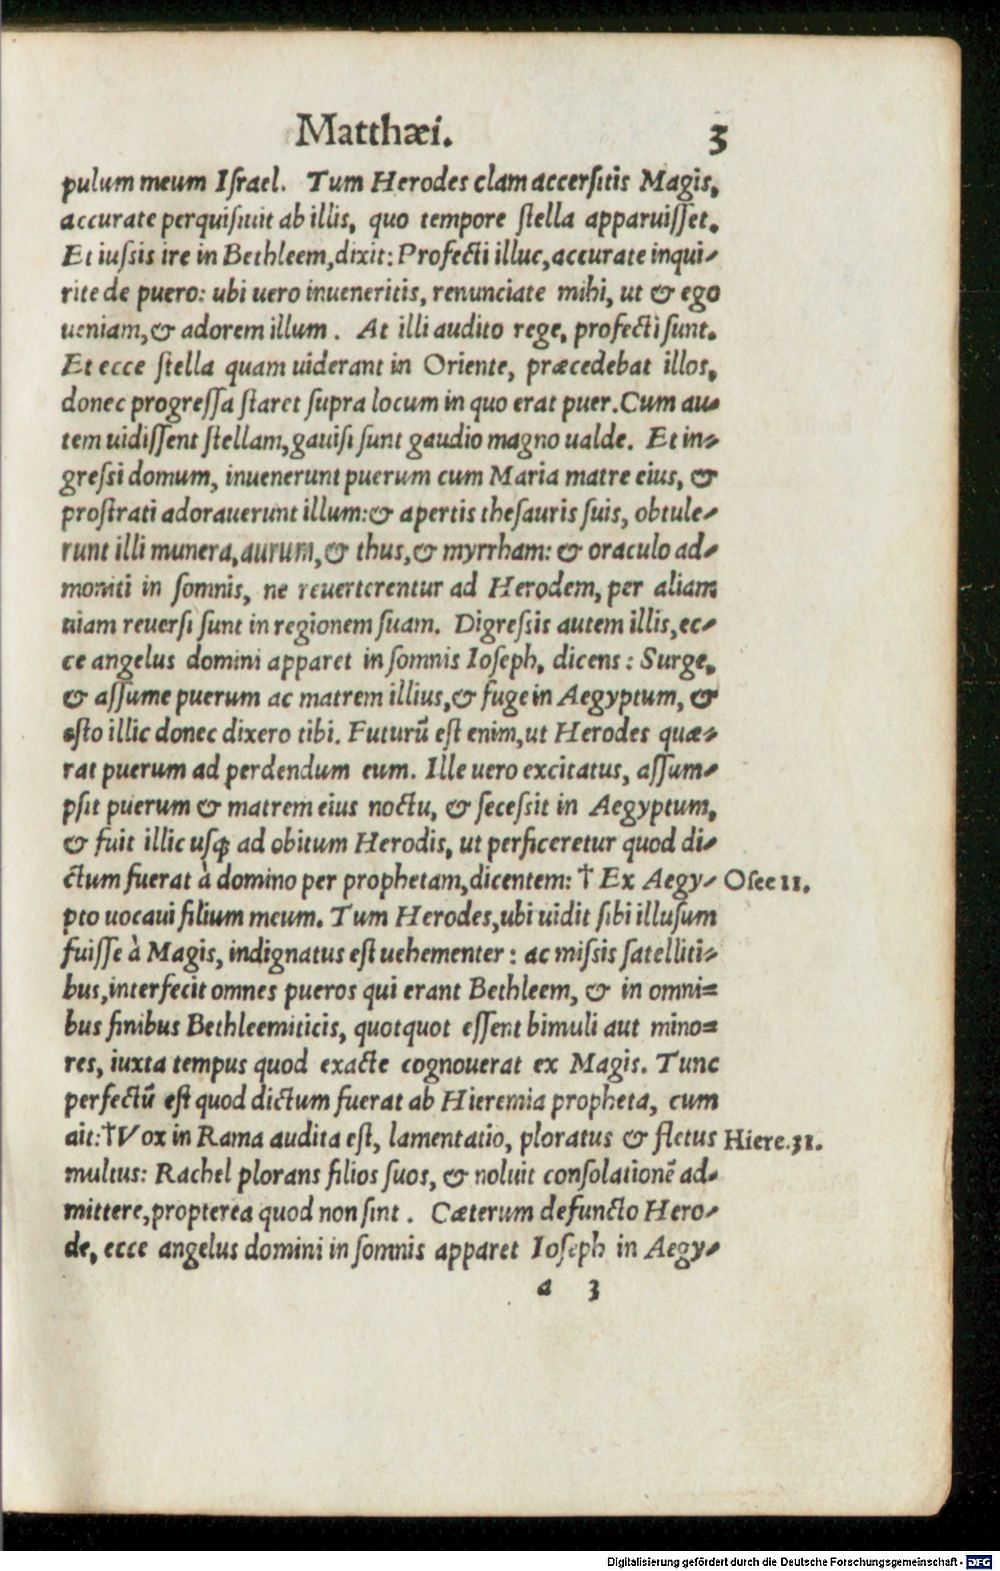 Matthæi. 3
pulum meum Iſrael. Tum Herodes clam accerſitis Magis,
accurate perquiſiuit ab illis, quo tempore ſtella apparuiſſet.
Et iuſsis ire in Bethleem,dixit: Profecti illuc,accurate inqui-
rite de puero: ubi uero inueneritis, renunciate mihi, ut & ego
ueniam,& adorem illum . At illi audito rege, profecti ſunt.
Et ecce ſtella quam uiderant in Oriente, præcedebat illos,
donec progreſſa ſtaret ſupra locum in quo erat puer.Cum au-
tem uidiſſent ſtellam,gauiſi ſunt gaudio magno ualde. Et in-
greſsi domum, inuenerunt puerum cum Maria matre eius, &
proſtrati adorauerunt illum:& apertis theſauris ſuis, obtule-
runt illi munera,aurum,& thus,& myrrham: & oraculo ad-
moniti in ſomnis, ne reuerterentur ad Herodem, per aliam
uiam reuerſi ſunt in regionem ſuam. Digreſsis autem illis,ec-
ce angelus domini apparet in ſomnis Ioſeph, dicens : Surge,
& aſſume puerum ac matrem illius,& fuge in Aegyptum, &
eſto illic donec dixero tibi. Futurū eſt enim,ut Herodes quæ-
rat puerum ad perdendum eum. Ille uero excitatus, aſſum-
pſit puerum & matrem eius noctu, & ſeceſsit in Aegyptum,
& fuit illic uſqꝫ ad obitum Herodis, ut perficeretur quod di-
ctum fuerat à domino per prophetam,dicentem: † Ex Aegy- Oſee 11.
pto uocaui filium meum. Tum Herodes,ubi uidit ſibi illuſum
fuiſſe à Magis, indignatus eſt uehementer : ac miſsis ſatelliti-
bus,interfecit omnes pueros qui erant Bethleem, & in omni-
bus finibus Bethleemiticis, quotquot eſſent bimuli aut mino-
res, iuxta tempus quod exacte cognouerat ex Magis. Tunc
perfectū eſt quod dictum fuerat ab Hieremia propheta, cum
ait:†Vox in Rama audita eſt, lamentatio, ploratus & fletus Hiere.31.
multus: Rachel plorans filios ſuos, & noluit conſolationē ad-
mittere,propterea quod non ſint . Cæterum defuncto Hero-
de, ecce angelus domini in ſomnis apparet Ioſeph in Aegy-
a 3
Digitalisierung gefördert durch die Deutsche Forschungsgemeinschaft - DFG